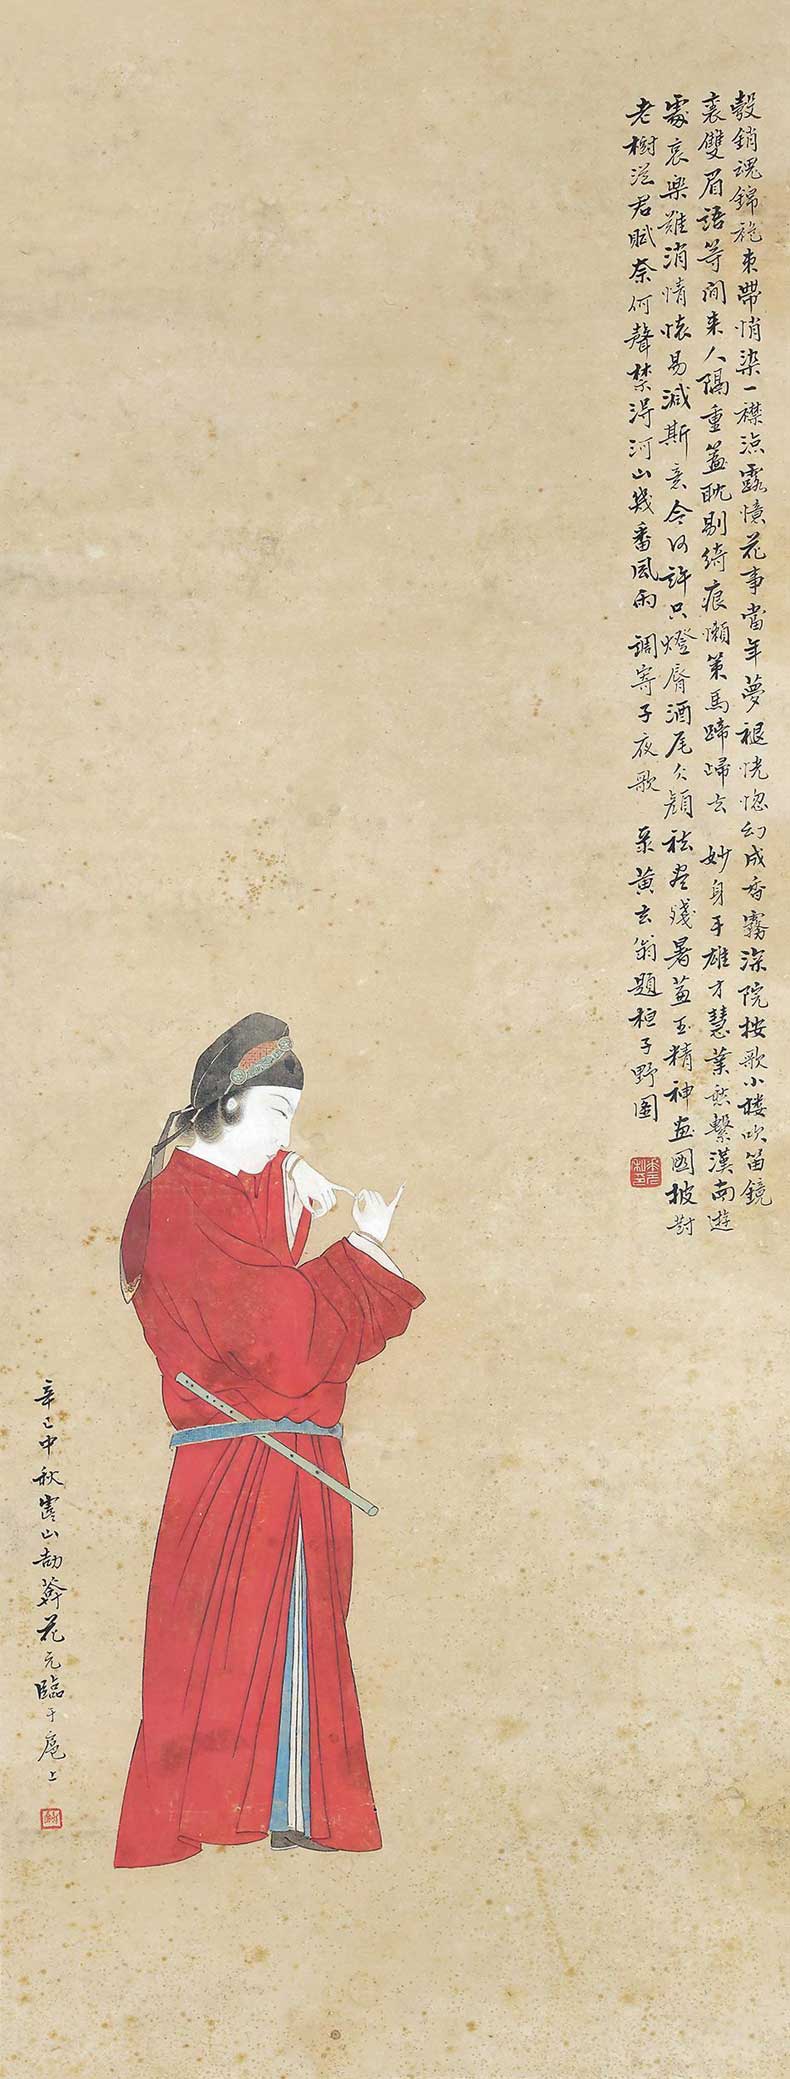 縠銷魂錦袍束帶悄染一襟涼露憤花事當年夢褪恍惚幻成香霧深院按歌小樓吹笛鏡
裏雙眉語等閒來人隔重簾眈剔綺痕懶策馬蹄歸去 妙身手雄才慧業愁繫漢南遊
處哀樂難消情懷易減斯意今何許只燈脣酒尾顏祛盡殘暑蓋玉精神畫圖披對
老樹從君賦奈何聲禁得河山幾番風雨 調寄子夜歌 录黃玄翁題桓子野圖
辛巳中秋寒山劫葬花元臨于扈上